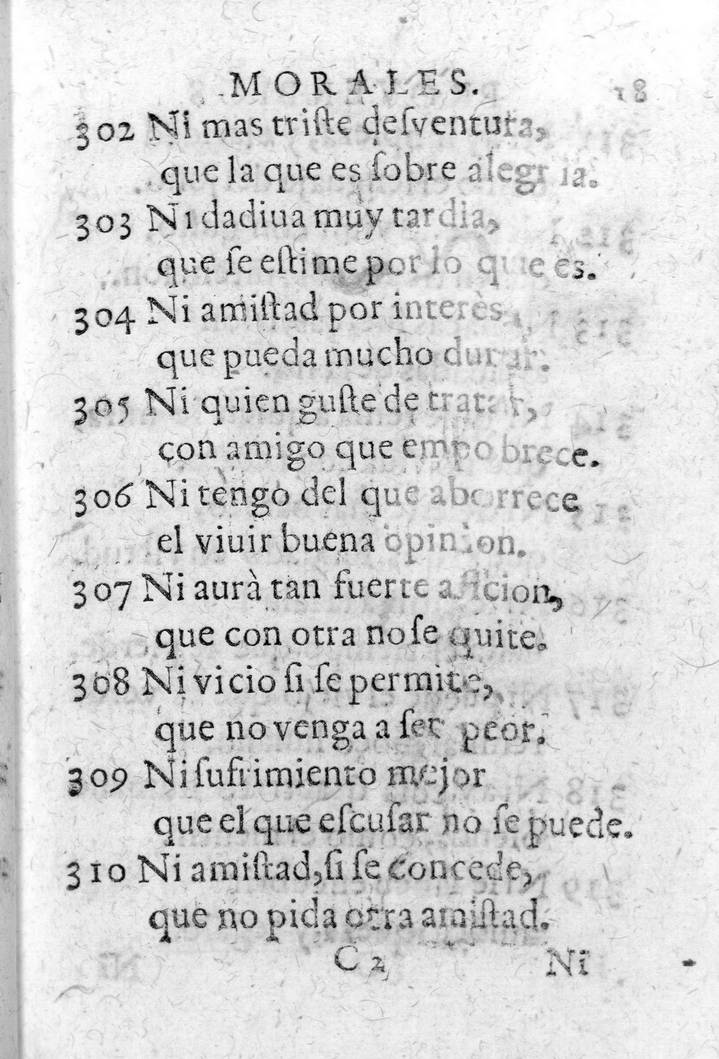 MORALES. 18
302 Ni mas triſte deſventura,
que la que es ſobre alegria.
303 Ni dadiua muy tardia,
que ſe eſtime por lo que es.
304 Ni amiſtad por interès,
que pueda mucho durar.
305 Ni quien guſte de tratar,
con amigo que empobrece.
306 Ni tengo del que aborrece
el viuir buena opinion.
307 Ni aurà tan fuerte aficion,
que con otra no ſe quite.
308 Ni vicio ſi ſe permite,
que no venga a ſer peor.
309 Ni ſufrimiento mejor
que el que eſcuſar no ſe puede.
310 Ni amiſtad, ſi ſe concede,
que no pida otra amiſtad.
C 2 Ni